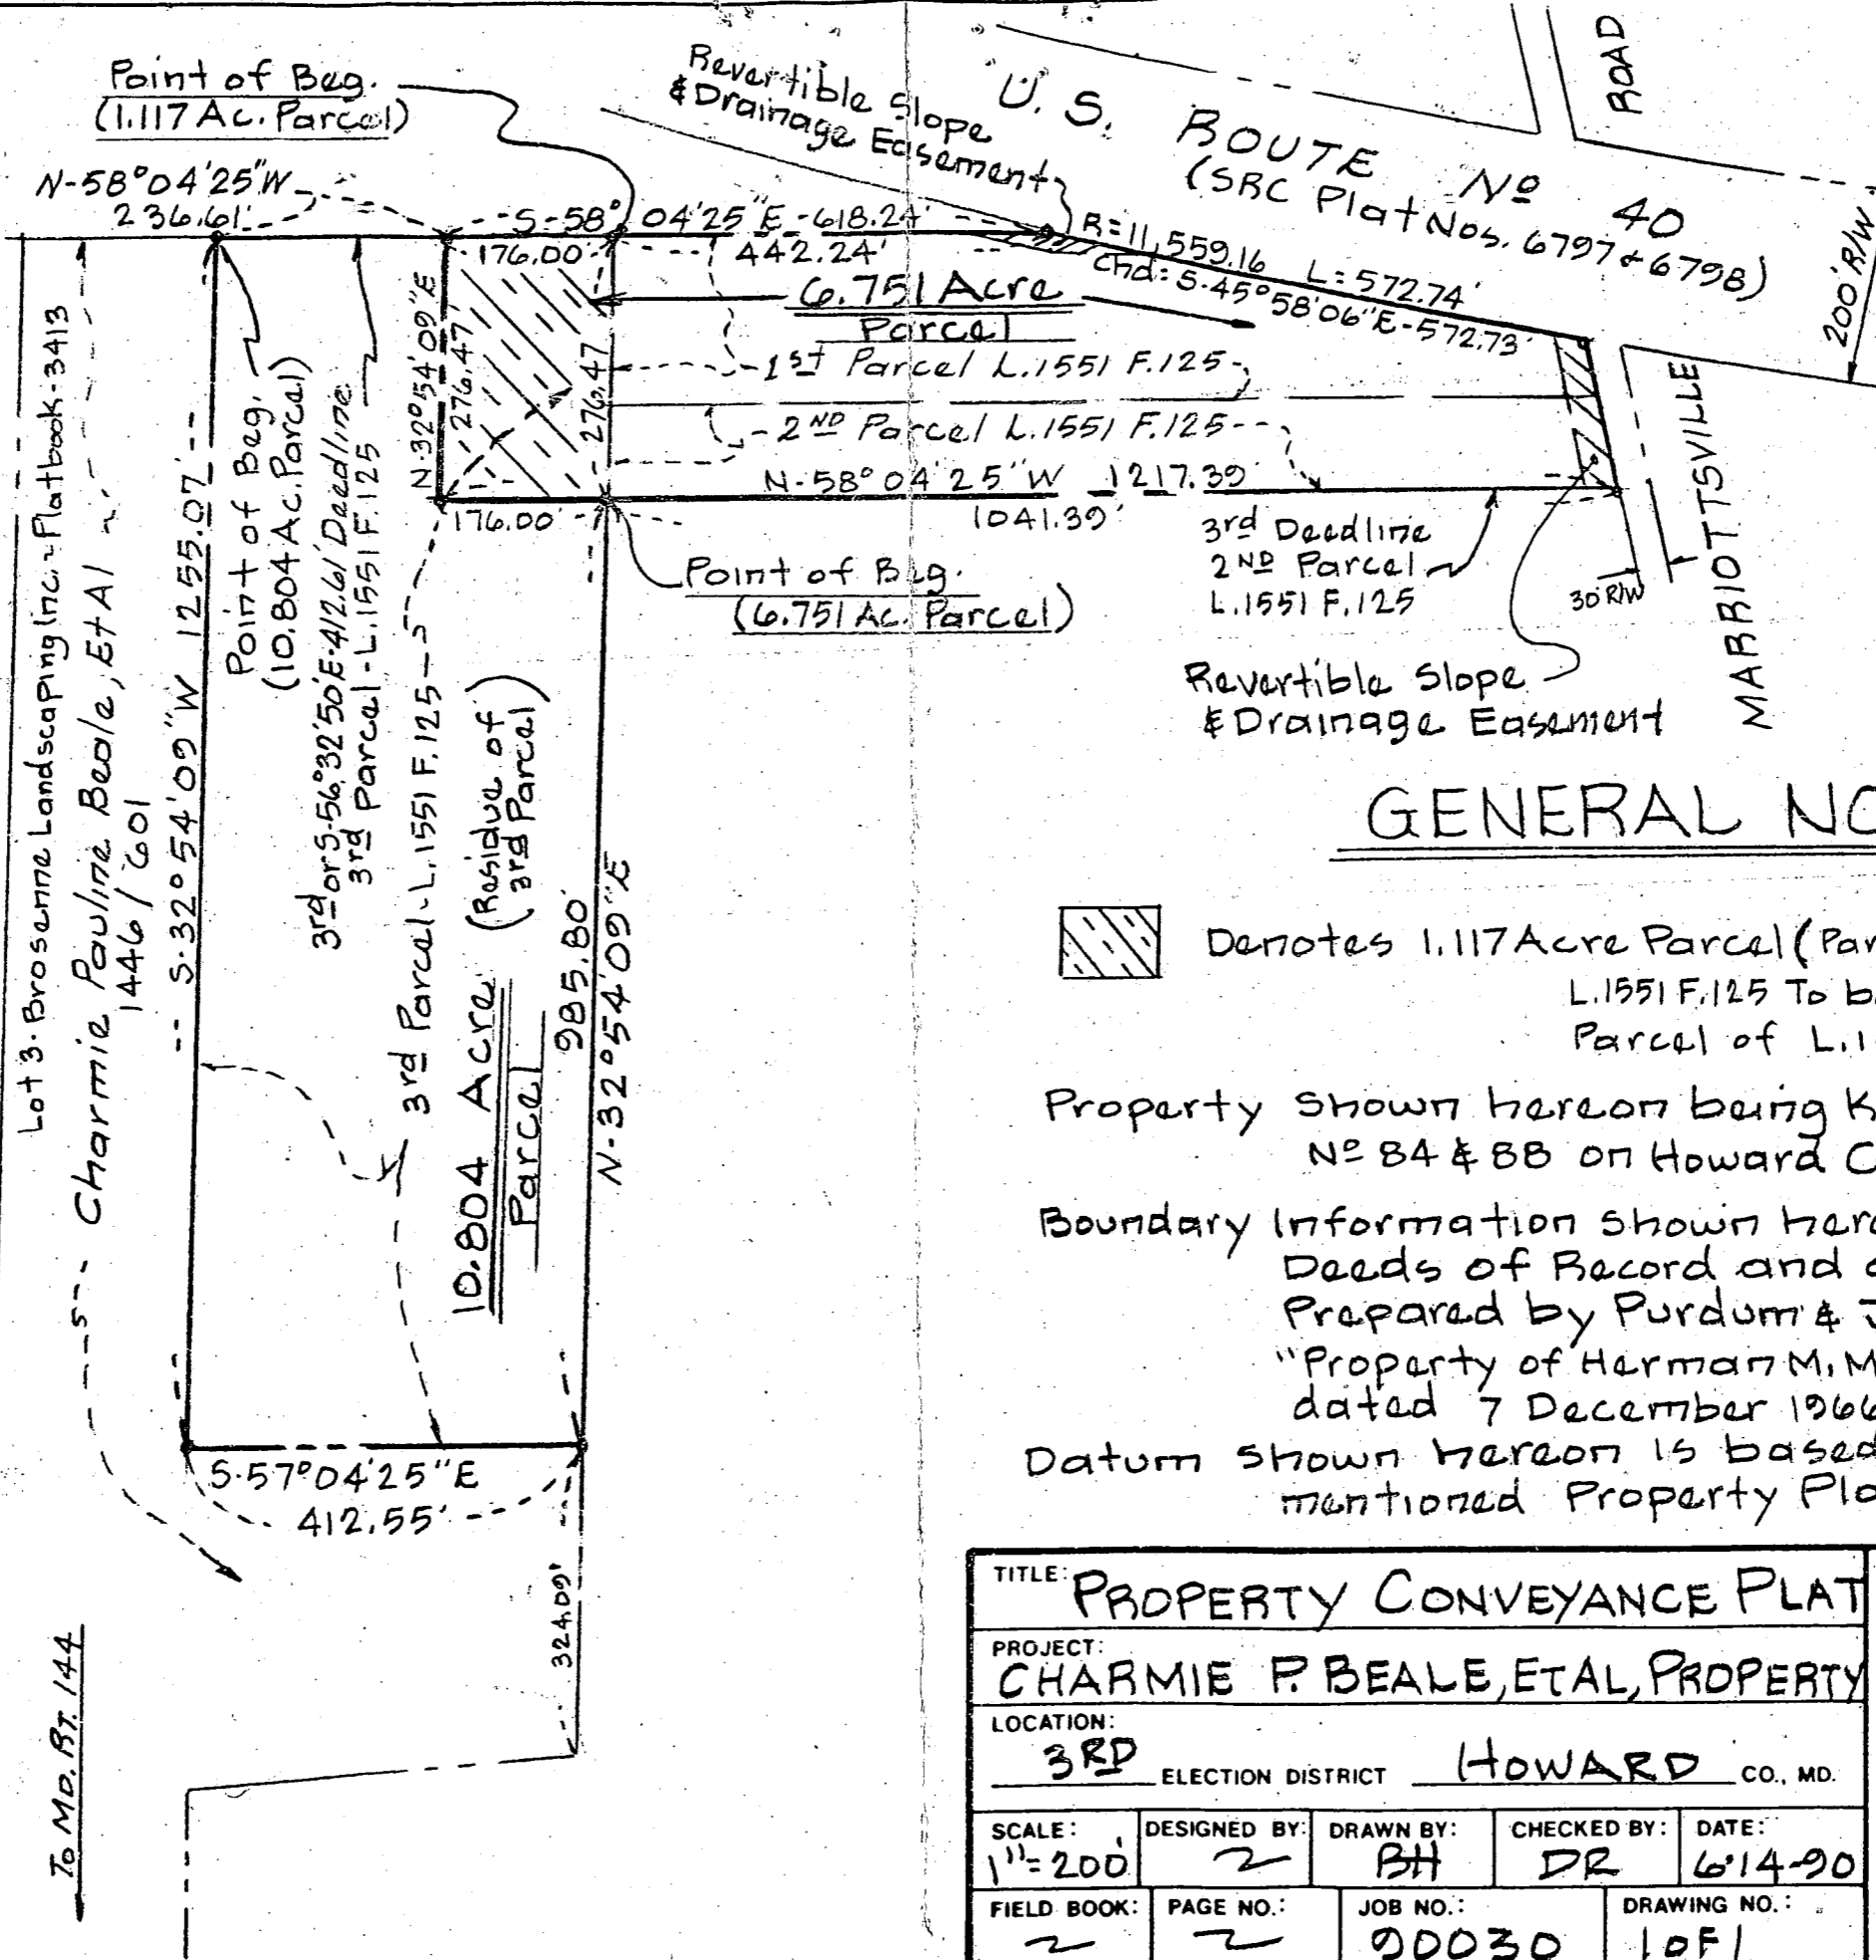 Point of Beg.
(1.117 Ac. Parcel)
Revertible Slope
& Drainage Easement
U. S. ROUTE Nº 40
(SRC Plat Nos. 6797 & 6798)
ROAD
200' R/W
N-58°04'25"W
236.61'
S-58°04'25"E-618.24'
176.00'
442.24'
R=11,559.16 L=572.74'
Chd: S.45°58'06"E-572.73'
6.751 Acre
Parcel
N.32°54'09"E
276.47'
276.47
1st Parcel L.1551 F.125
2ND Parcel L.1551 F.125
N-58°04'25"W 1217.39'
176.00'
1041.39'
3rd Deadline
2ND Parcel
L.1551 F.125
Point of Beg.
(6.751 Ac. Parcel)
30' R/W
MARRIOTTSVILLE
Revertible Slope
& Drainage Easement
Lot 3. Brosenne Landscaping Inc. - Platbook-3413
Charmie Pauline Beale, Et Al
1446/601
S-32°54'09"W 1255.07'
Point of Beg.
(10.804 Ac. Parcel)
3rd or S-56°32'50"E-412.61' Deadline
3rd Parcel-L.1551 F.125
3rd Parcel-L.1551 F.125
10.804 Acre
Parcel
(Residue of
3rd Parcel)
985.80'
N-32°54'09"E
S-57°04'25"E
412.55'
324.09'
To MD. RT. 144
GENERAL NO
Denotes 1.117 Acre Parcel (Par
L.1551 F.125 To b
Parcel of L.1
Property Shown hereon being K
Nº 84 & 88 on Howard C
Boundary Information shown here
Deeds of Record and
Prepared by Purdum & J
"Property of Herman M. M
dated 7 December 1966
Datum shown hereon is based
mentioned Property Pla
TITLE: PROPERTY CONVEYANCE PLAT
PROJECT:
CHARMIE P. BEALE, ET AL, PROPERTY
LOCATION:
3RD ELECTION DISTRICT HOWARD CO., MD.
SCALE: DESIGNED BY: DRAWN BY: CHECKED BY: DATE:
1"=200' BH DR 6-14-90
FIELD BOOK: PAGE NO.: JOB NO.: DRAWING NO.:
90030 1 OF 1